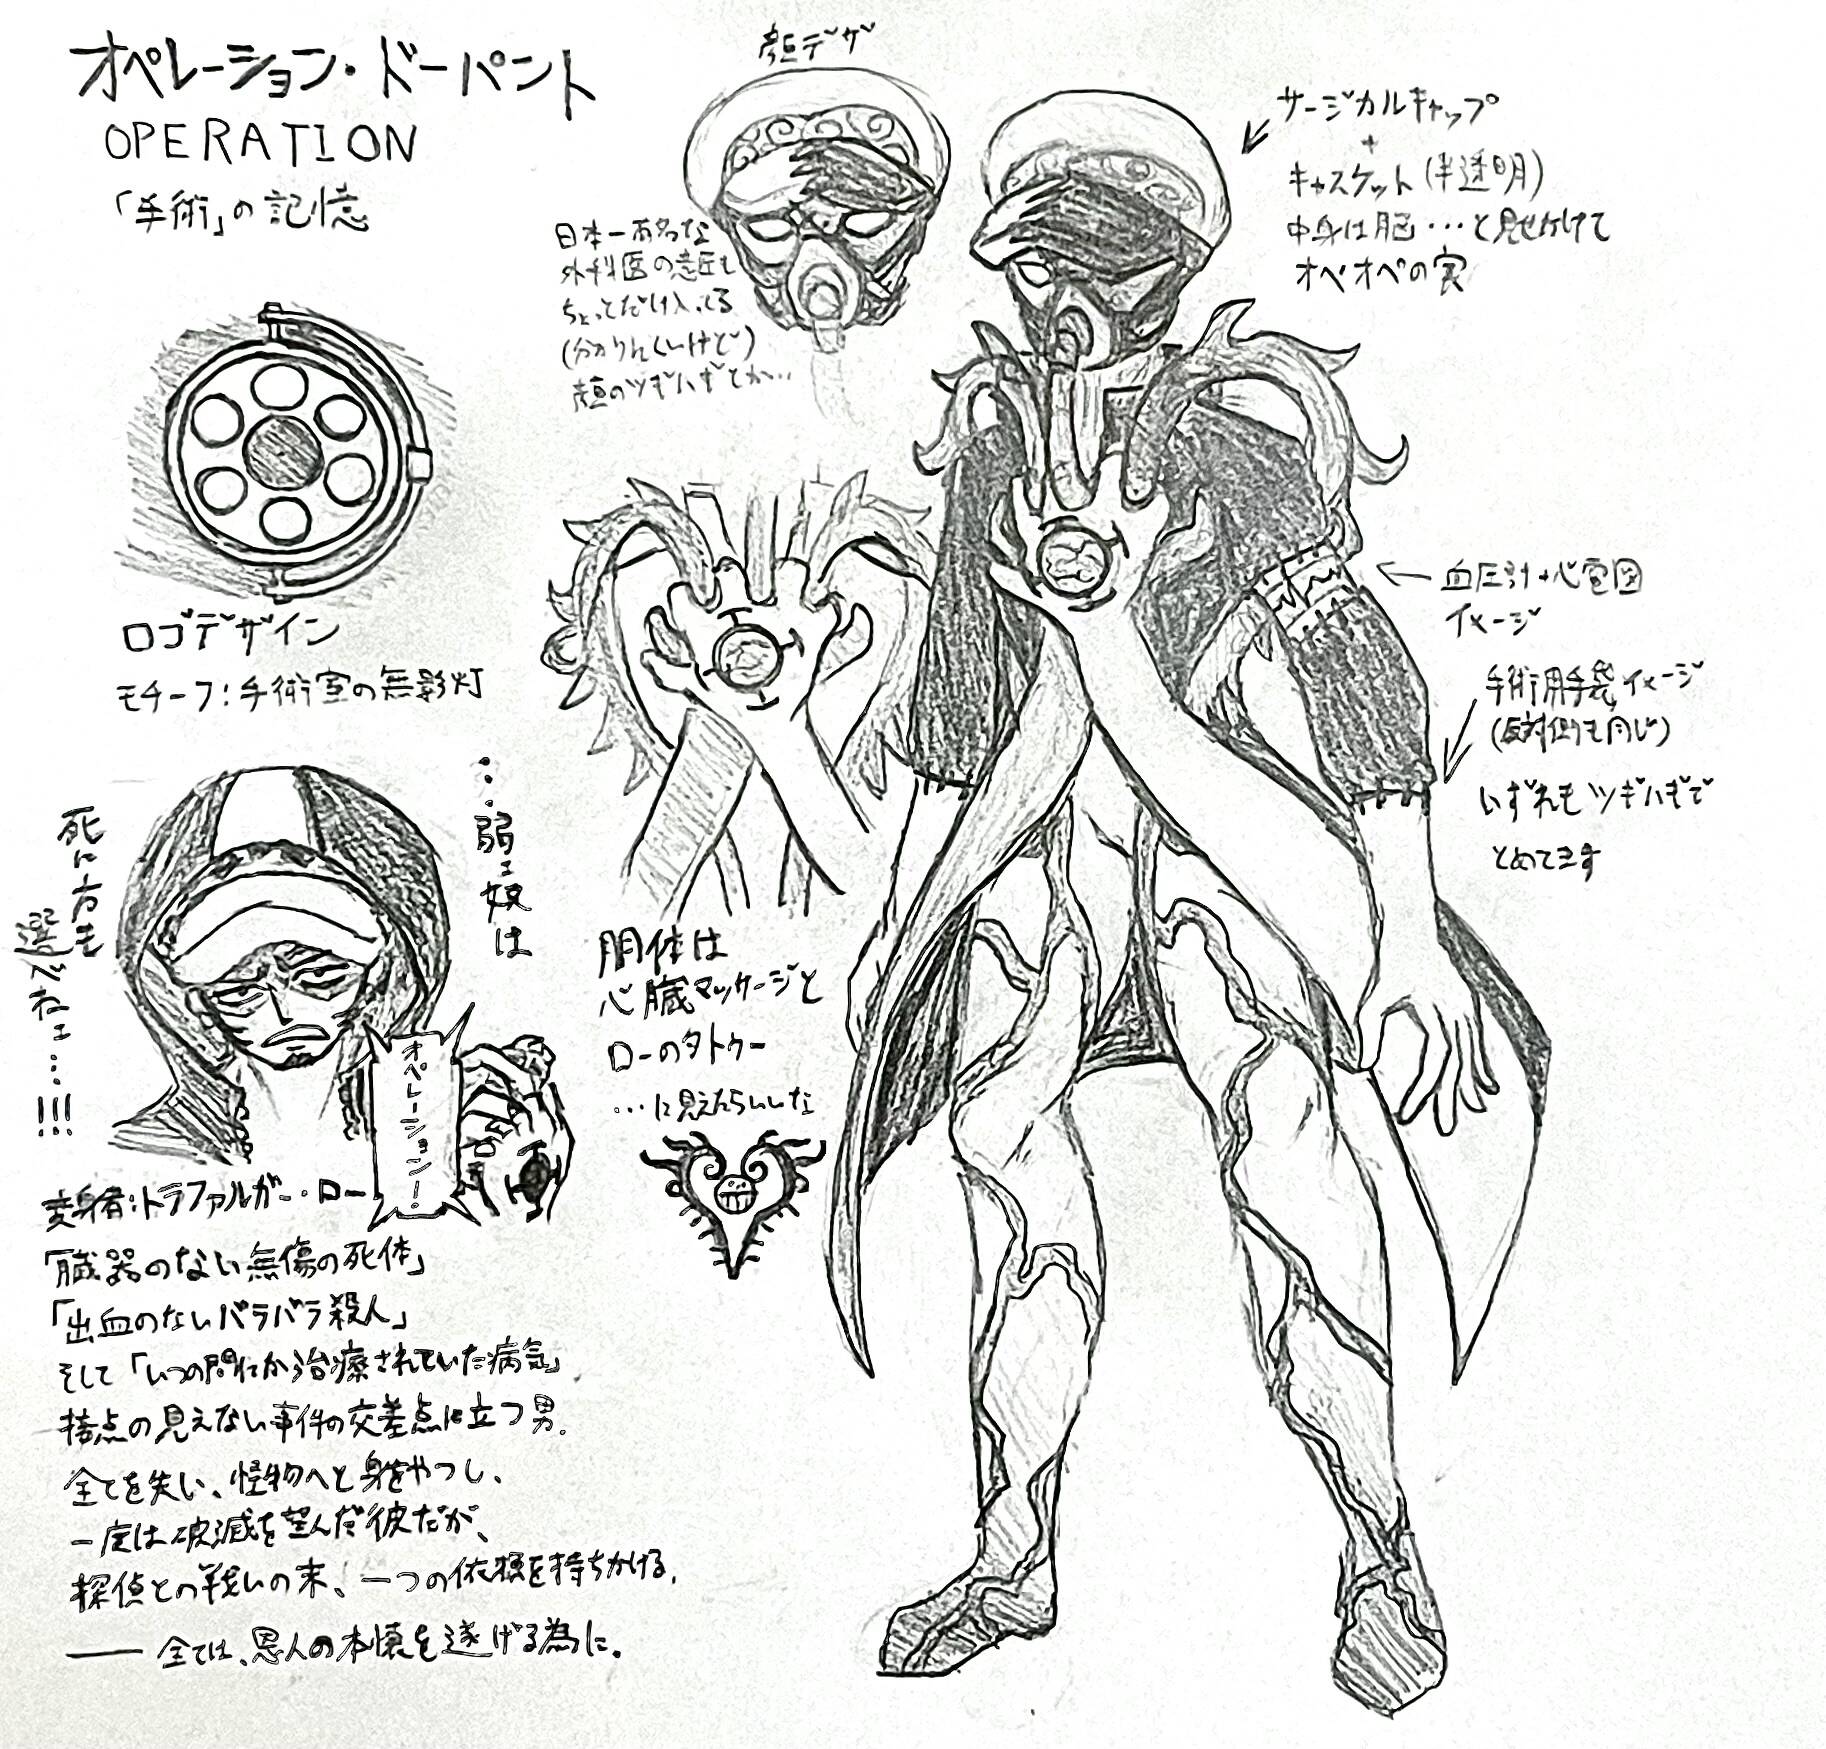 オペレーション・ドーパント
OPERATION
「手術」の記憶
ロゴデザイン
モチーフ：手術室の無影灯
顔デザ
日本一有名な
外科医の意匠も
ちょっとだけ入ってる
(分かりにくいけど)
顔のツギハギとか…
サージカルキャップ
+
キャスケット(半透明)
中身は脳…と見せかけて
オペオペの実
血圧計+心電図
イメージ
手術用手袋イメージ
(反対側も同じ)
いずれもツギハギで
とめてます
胴体は
心臓マッサージと
ローのタトゥー
…に見えたらいいな
…弱ェ奴は
死に方も
選べねェ…!!!
オペレーション!
変身者：トラファルガー・ロー
「臓器のない無傷の死体」
「出血のないバラバラ殺人」
そして「いつの間にか治療されていた病気」
接点の見えない事件の交差点に立つ男。
全てを失い、怪物へと身をやつし、
一度は破滅を望んだ彼だが、
探偵との戦いの末、一つの依頼を持ちかける。
――全ては、恩人の本懐を遂げる為に。